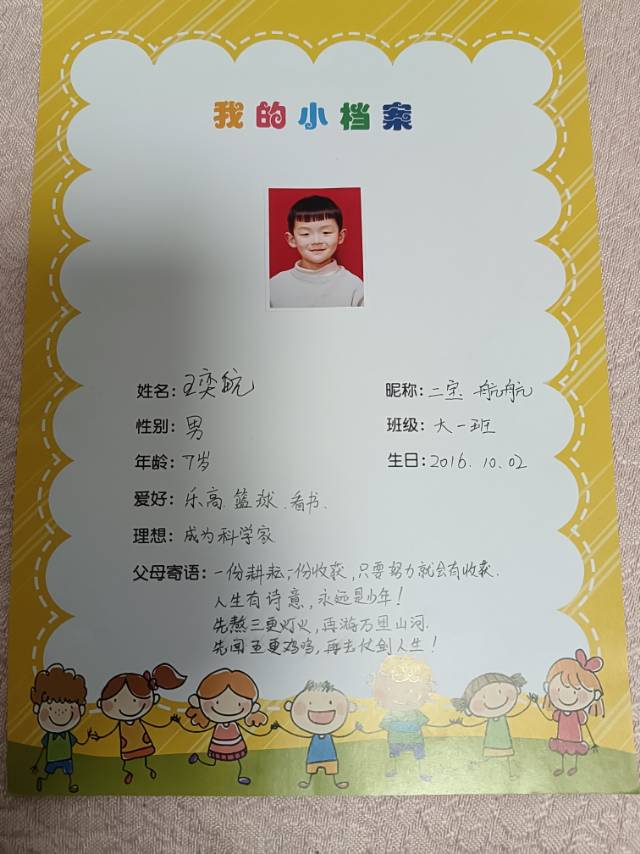 我的小档案
姓名：王奕航 昵称：二宝 航航
性别：男 班级：大一班
年龄：7岁 生日：2016.10.02
爱好：乐高.篮球.看书.
理想：成为科学家
父母寄语：一份耕耘，一份收获，只要努力就会有收获.
人生有诗意，永远是少年！
先熬三更灯火，再游万里山河.
先闻五更鸡鸣，再去仗剑人生！